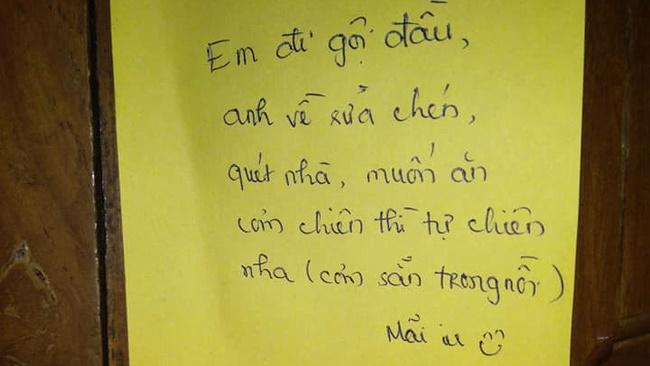 Em đi gội đầu,
anh về rửa chén,
quét nhà, muốn ăn
cơm chiên thì tự chiên
nha (cơm sẵn trong nồi)
Mãi iu